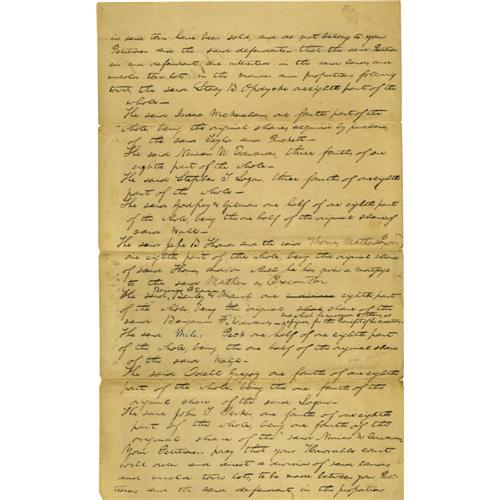 in said town have been sold, and do not belong to your
Petitioner and the said defendants that the said Petition
er and defendants are interested in the said lands and
unsold town lots in the manner and proportions following
towit, the said Stacy B. Opdycke one eighth part of the
whole—
The said Isaac one fourth part of the
whole being the original shares acquired by purchase
of the said Taylor and Puckett—
The said Ninian W. Edwards, three fourths of one
eighth part of the whole—
The said Stephen T. Logan, three fourths of one eighth
part of the whole—
The said Godfrey & Gilman one half of one eighth part
of the whole being the one half of the original share of
said Wall—
The said Jesse B Thomas and the said Thomas Mather Exor
one eighth part of the whole being the original share
of said Thomas and on which he has given a mortgage
to the said Mather as Executor
The said one eighth part
of the whole, being the original share of the
said Benjamin F Edwards—
The said Peck one half of one eighth part
of the whole being the one half of the original share
of the said Wall—
The said Odell Gregory one fourth of one eighth
part of the whole being the one fourth of the
original share of the said Logan—
The said John T. one fourth of one eighth
part of the whole being one fourth of the
original share of the said Ninian W Edwards
Your Petitioner pray that your Honorable court
will order and direct a division of said lands
and unsold town lots, to be made between your Peti
tioner and the said defendants, in the proportions